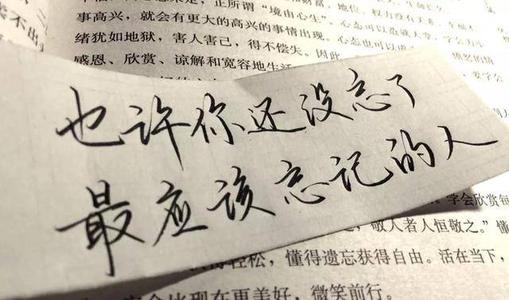 事高兴，就会有更大的高兴的事情出现。
绪犹如地狱，害人害己，得不偿失。因此
感恩、欣赏、谅解和宽容地生活
也许你还没忘了
最应该忘记的人
学会欣赏每
敬人者人恒敬之。”懂
轻松，懂得遗忘获得自由。活在当下，
比现在更美好，微笑前行。